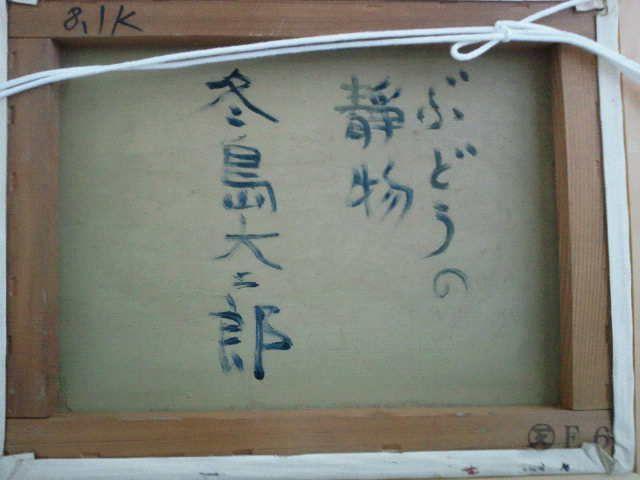 8,1K
ぶどうの
静物
冬島大二郎
F 6